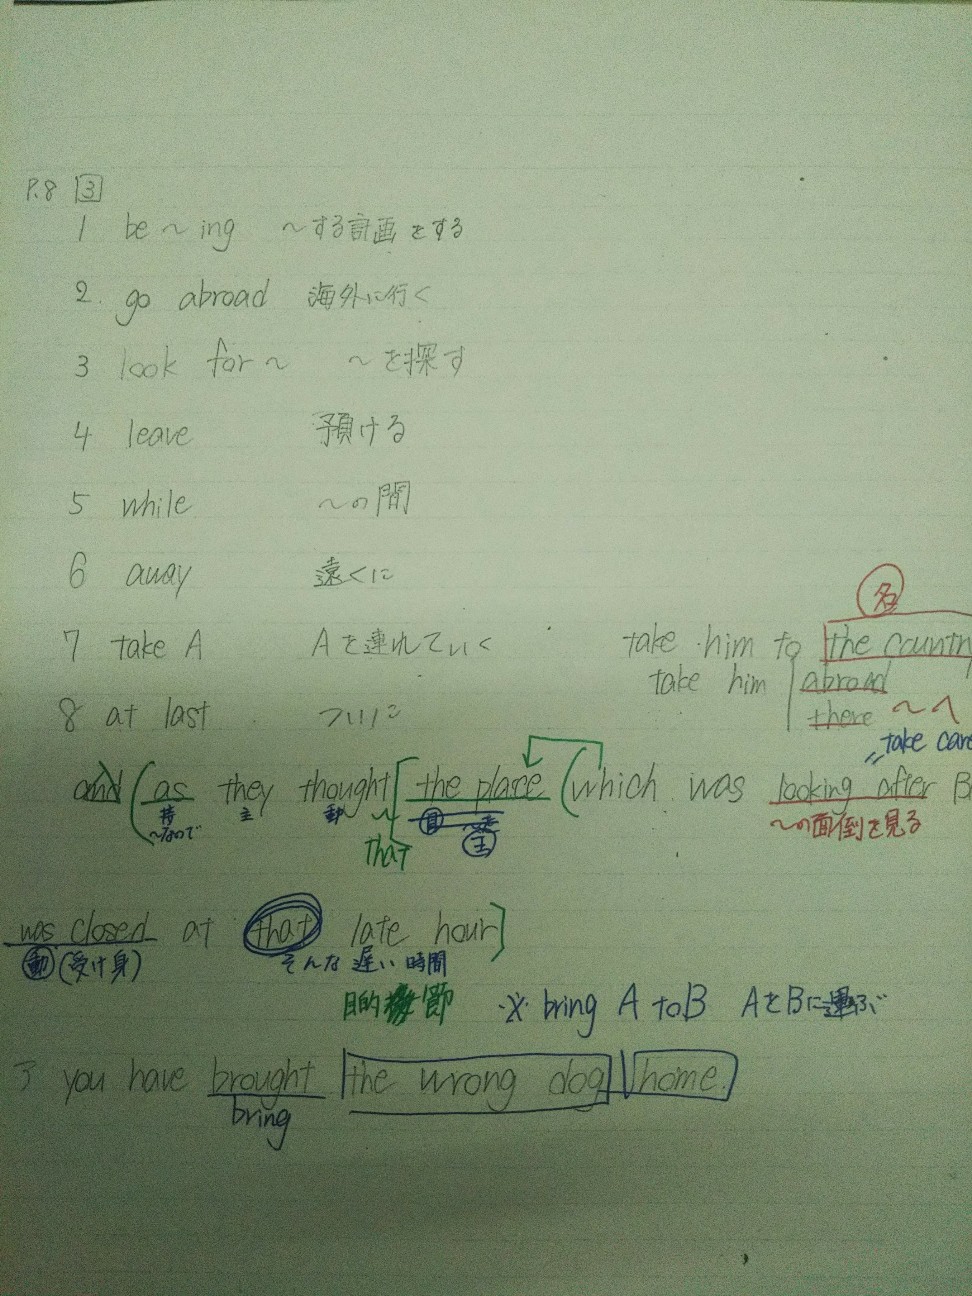 P.8 3
1 be ~ ing ~する計画をする
2. go abroad 海外に行く
3 look for ~ ~を探す
4 leave 預ける
5 while ~の間
6 away 遠くに
名
7 take A Aを連れていく take him to the countr
take him abroad
8 at last ついに there ~へ
take care
and (as they thought [the place (which was looking after B
~なので 主 動 ~の面倒を見る
that 主
was closed at that late hour]
動 (受け身) そんな 遅い 時間
目的 節 ※ bring A to B AをBに運ぶ
3 you have brought the wrong dog home.
bring